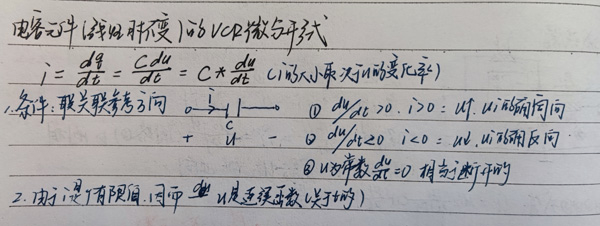 电容元件(线性时不变)的VCR微分形式
i = dq/dt = Cdu/dt = C*du/dt (i的大小取决于u的变化率)
1.条件:取关联参考方向 i ① du/dt>0. i>0: u↑. u i的瞬间同向
C
+ u - ② du/dt<0 i<0: u↓. u i的瞬反向
③ u为常数 du/dt=0 相当于断开的
2.由于i是个有限值.因而 u是连续函数(关于t的)